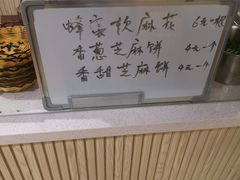 蜂蜜软麻花 6元一根
香蔥芝麻饼 4元一个
香甜芝麻餅 4元一个